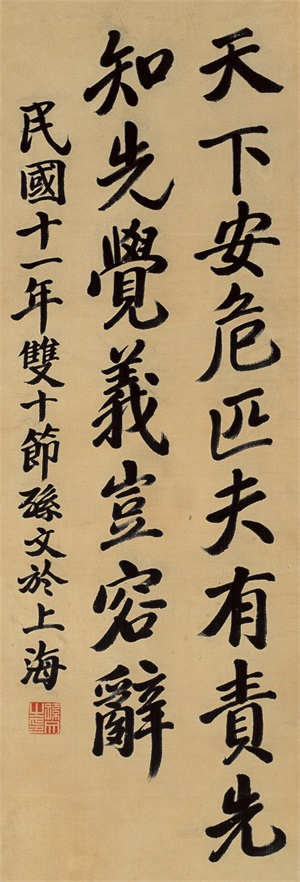 天下安危匹夫有責先
知先覺義豈容辭
民國十一年雙十節孫文於上海
孫文之印